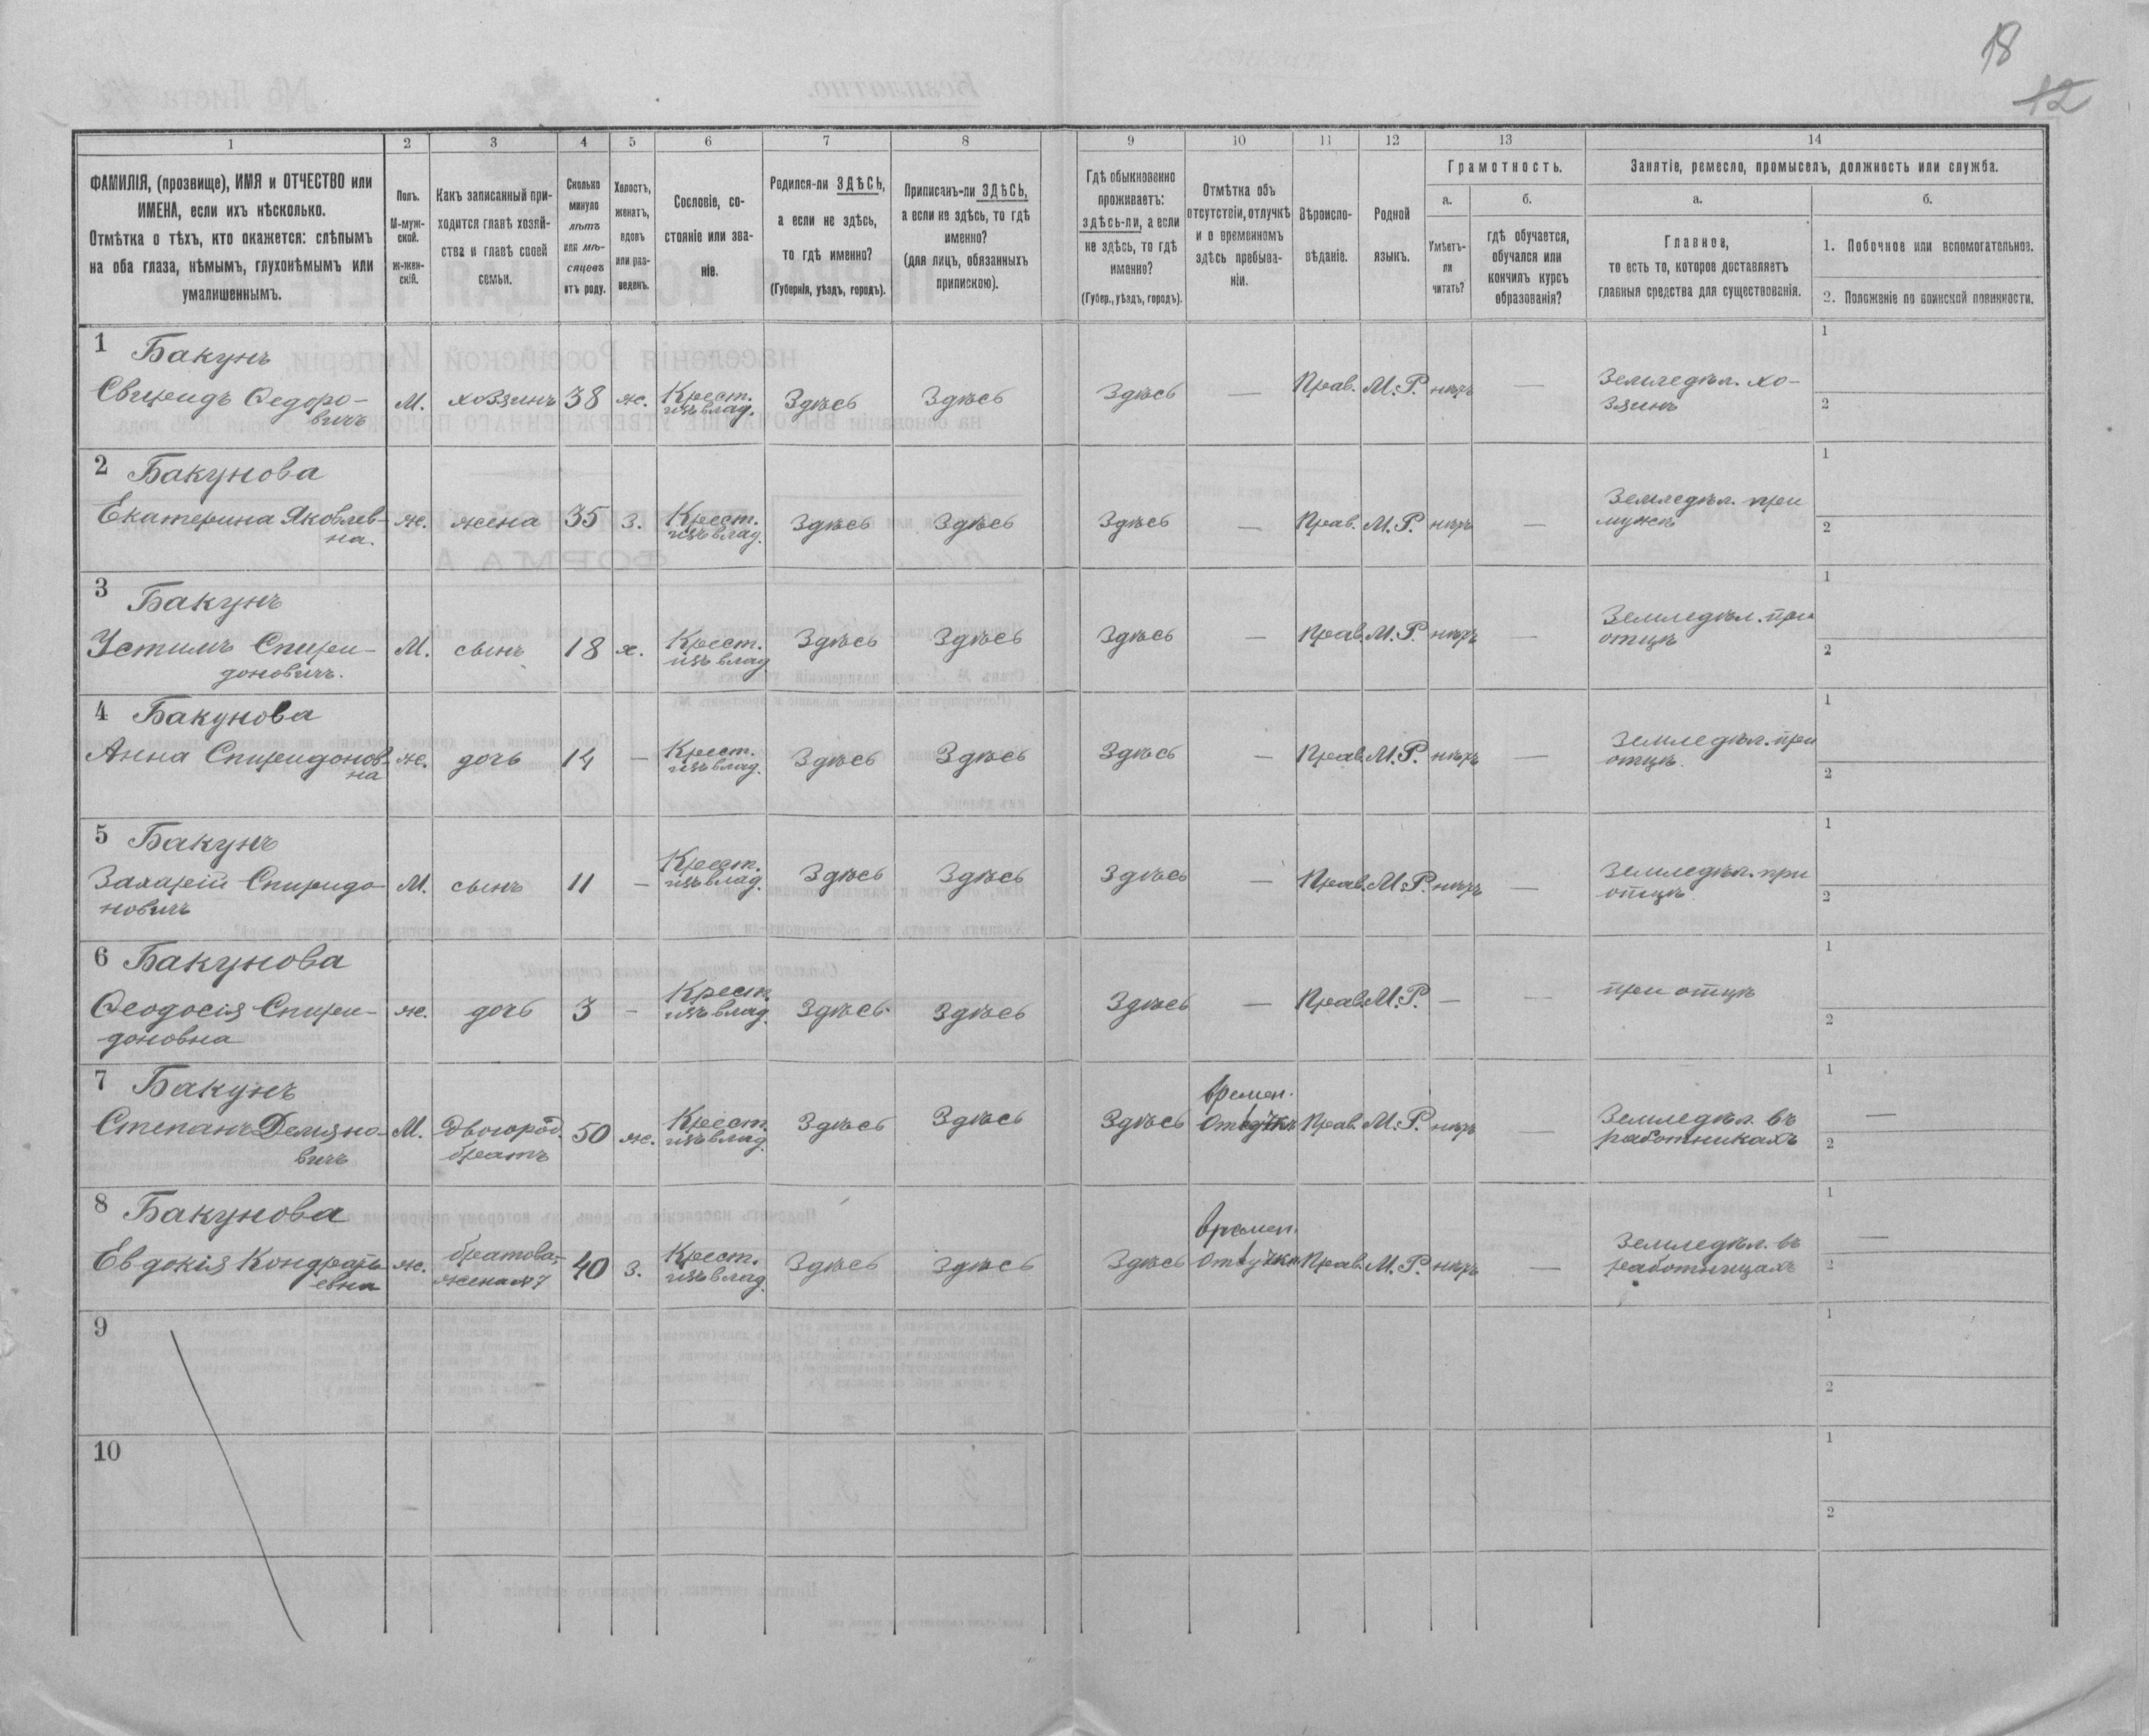 18
12
1
2
3
4
5
6
7
8
9
10
11
12
13
14
ФАМИЛІЯ, (прозвище), ИМЯ и ОТЧЕСТВО или
ИМЕНА, если ихъ нѣсколько.
Отмѣтка о тѣхъ, кто окажется: слѣпымъ
на оба глаза, нѣмымъ, глухонѣмымъ или
умалишеннымъ.
Полъ.
М-муж-
ской.
Ж-жен-
скій.
Какъ записанный при-
ходится главѣ хозяй-
ства и главѣ своей
семьи.
Сколько
минуло
лѣтъ
или мѣ-
сяцевъ
отъ роду.
Холостъ,
женатъ,
вдовъ
или раз-
веденъ.
Сословіе, со-
стояніе или зва-
ніе.
Родился-ли ЗДѢСЬ,
а если не здѣсь,
то гдѣ именно?
(Губернія, уѣздъ, городъ).
Приписанъ-ли ЗДѢСЬ,
а если не здѣсь, то гдѣ
именно?
(для лицъ, обязанныхъ
припискою).
Гдѣ обыкновенно
проживаетъ:
здѣсь-ли, а если
не здѣсь, то гдѣ
именно?
(Губер., уѣздъ, городъ).
Отмѣтка объ
отсутствіи, отлучкѣ
и о временномъ
здѣсь пребыва-
ніи.
Вѣроиспо-
вѣданіе.
Родной
языкъ.
Грамотность.
а.
Умѣетъ-
ли
читать?
б.
гдѣ обучается,
обучался или
кончилъ курсъ
образованія?
Занятіе, ремесло, промыселъ, должность или служба.
а.
Главное,
то есть то, которое доставляетъ
главныя средства для существованія.
б.
1. Побочное или вспомогательное.
2. Положеніе по воинской повинности.
1 Бакунъ
Свиридъ Ѳедоро-
вичъ
М. хозяинъ 38 ж. Крест.
изъ влад.
Здѣсь Здѣсь Здѣсь — Прав. М.Р. нѣтъ — Земледѣл. хо-
зяинъ
1
2
2 Бакунова
Екатерина Яковлев-
на.
ж. жена 35 з. Крест.
изъ влад.
Здѣсь Здѣсь Здѣсь — Прав. М.Р. нѣтъ — Земледѣл. при
мужѣ
1
2
3 Бакунъ
Устимъ Спири-
доновичъ.
М. сынъ 18 х. Крест.
изъ влад
Здѣсь Здѣсь Здѣсь — Прав. М.Р. нѣтъ — Земледѣл. при
отцѣ
1
2
4 Бакунова
Анна Спиридонов-
на
ж. дочь 14 — Крест.
изъ влад.
Здѣсь Здѣсь Здѣсь — Прав. М.Р. нѣтъ — Земледѣл. при
отцѣ.
1
2
5 Бакунъ
Захарій Спиридо-
новичъ
М. сынъ 11 — Крест.
изъ влад.
Здѣсь Здѣсь Здѣсь — Прав. М.Р. нѣтъ — Земледѣл. при
отцѣ
1
2
6 Бакунова
Ѳеодосія Спири-
доновна
ж. дочь 3 — Крест.
изъ влад.
Здѣсь Здѣсь Здѣсь — Прав. М.Р. — — при отцѣ
1
2
7 Бакунъ
Степанъ Демяно-
вичъ
М. Двоюрод.
братъ
50 ж. Крест.
изъ влад.
Здѣсь Здѣсь Здѣсь времен.
Прав. М.Р. нѣтъ — Земледѣл. въ
работникахъ
1 —
2
8 Бакунова
Евдокія Кондрать-
евна
ж. братова-
жена №7
40 з. Крест.
изъ влад.
Здѣсь Здѣсь Здѣсь времен.
Прав. М.Р. нѣтъ — Земледѣл. въ
работницахъ
1 —
2
9
1
2
10
1
2